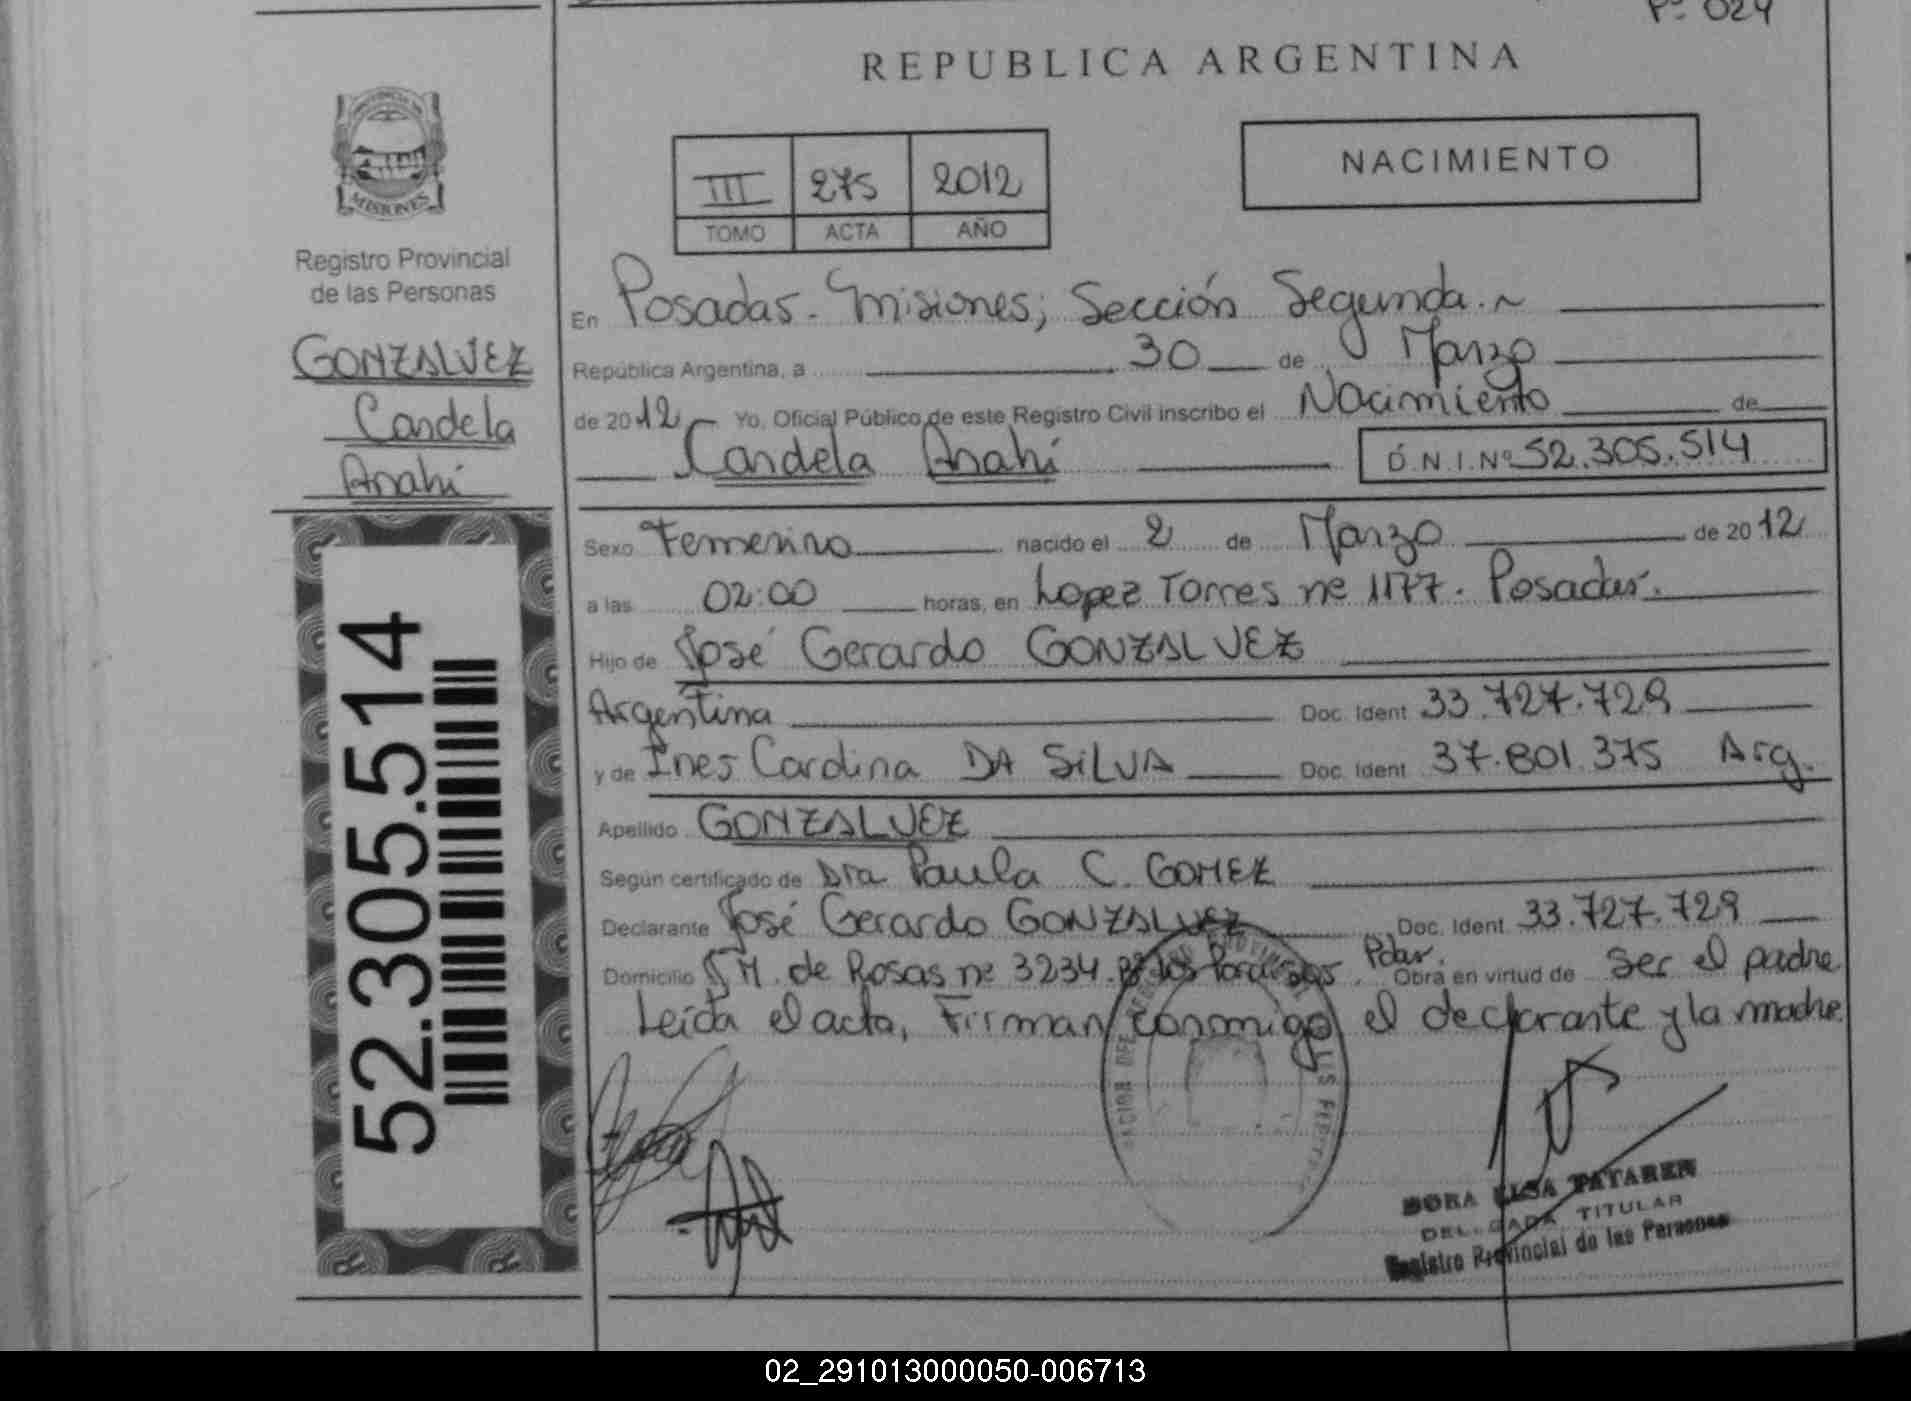 Pº 024
REPUBLICA ARGENTINA
NACIMIENTO
III 275 2012
TOMO ACTA AÑO
PROVINCIA DE
MISIONES
Registro Provincial
de las Personas
GONZALVEZ
Candela
Anahi
52.305.514
En Posadas. Misiones; Sección Segunda.~
República Argentina, a 30 de Marzo
de 2012 Yo, Oficial Público de este Registro Civil inscribo el Nacimiento de
Candela Anahí D.N.I.Nº 52.305.514
Sexo Femenino nacido el 2 de Marzo de 2012
a las 02:00 horas, en Lopez Torres nº 1177. Posadas.
Hijo de José Gerardo GONZALVEZ
Argentina Doc. Ident 33.727.729
y de Ines Carolina DA SILVA Doc. Ident 37.801.375 Arg.
Apellido GONZALVEZ
Según certificado de Dra Paula C. GOMEZ
Declarante José Gerardo GONZALVEZ Doc. Ident 33.727.729
Domicilio J M. de Rosas nº 3234. Bº Los Paraisos Pdas. Obra en virtud de ser el padre
Leída el acta, Firman conmigo el declarante y la madre.
DORA ELSA TATAREN
DELEGADA TITULAR
Registro Provincial de las Personas
02_291013000050-006713